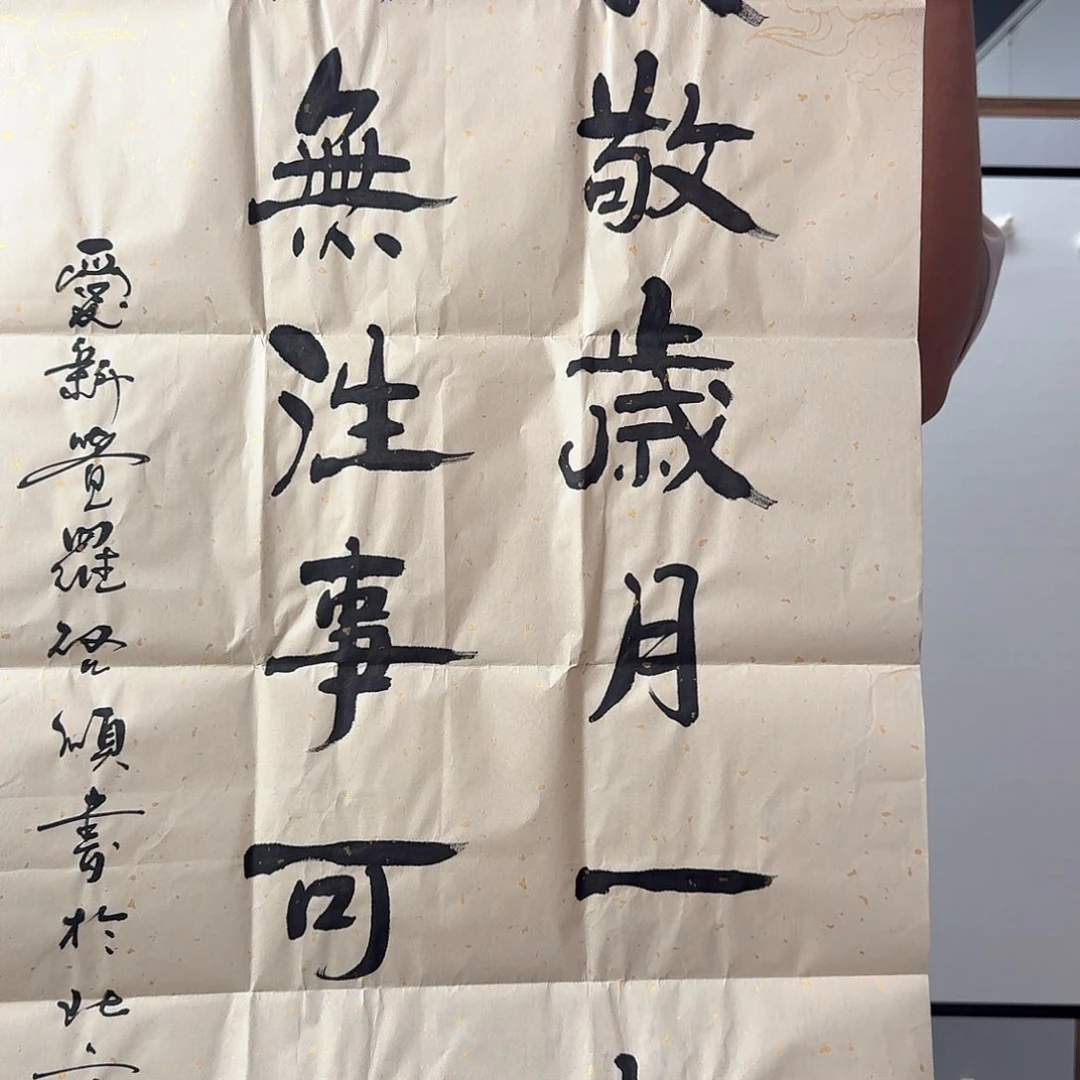 敬歲月一
無往事可
愛新覺羅書於北